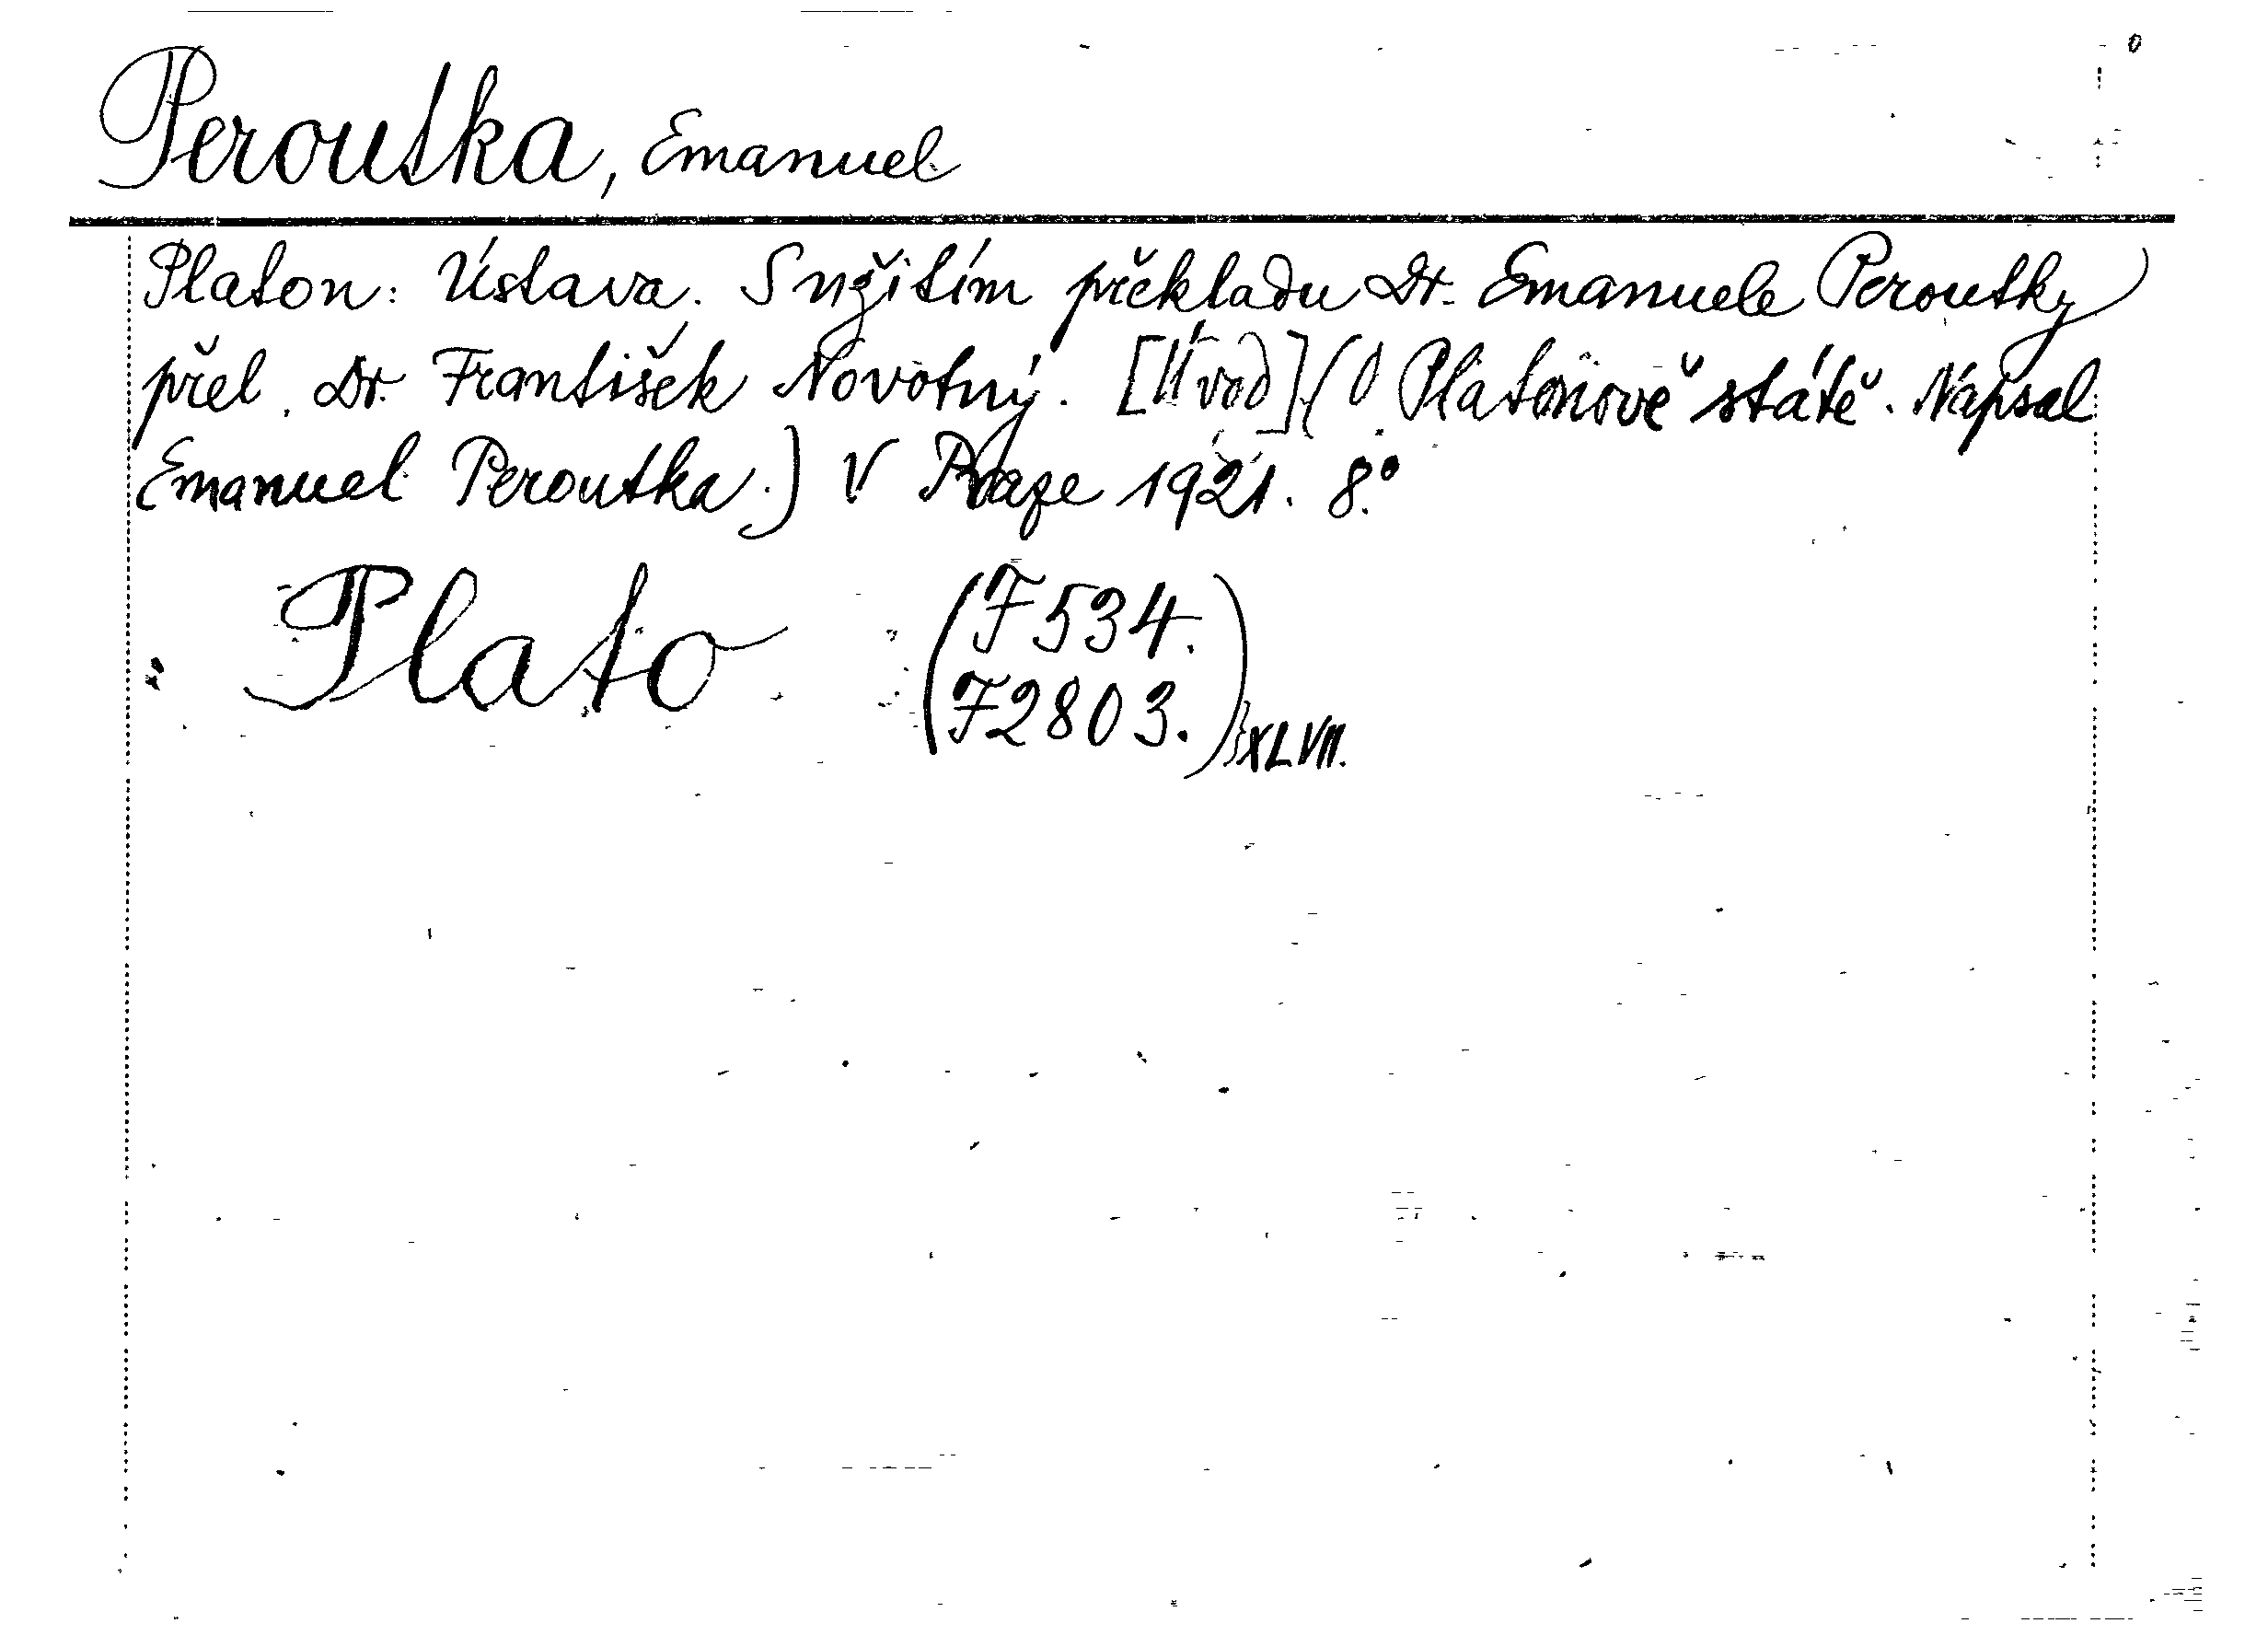 Peroutka, Emanuel
Platon: Ústava. S užitím překladu Dr. Emanuele Peroutky
přel. Dr. František Novotný. [Úvod] (O Platonově státě. Napsal
Emanuel Peroutka.) V Praze 1921. 8.°
Plato
(F 534.
F 2803.) XLVII.